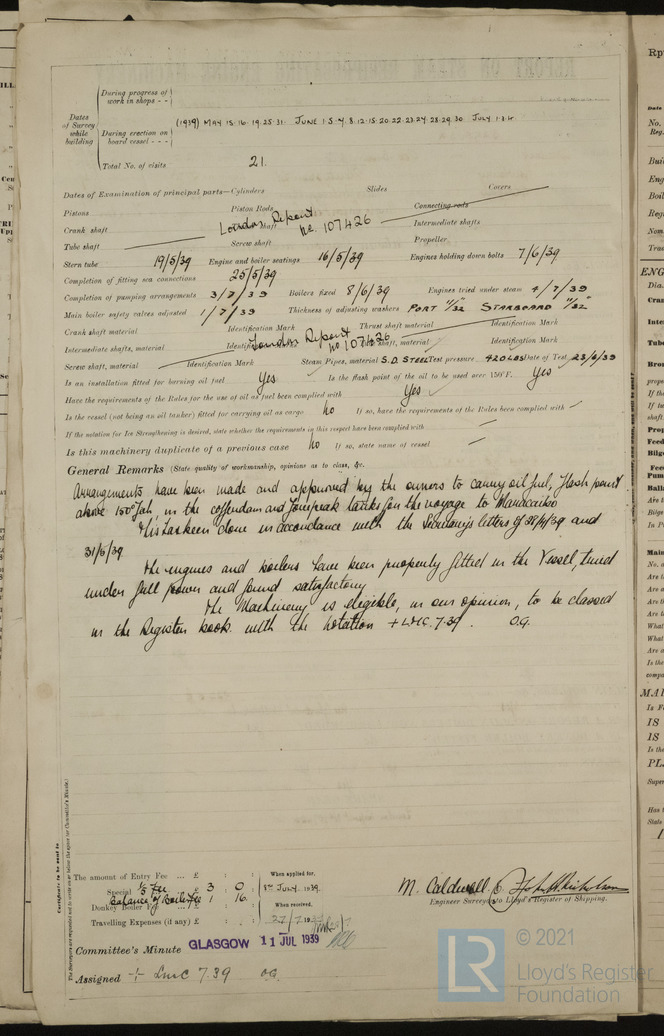 During progress of
work in shops - -
Dates
of Survey
while
building
During erection on
board vessel - - -
(1939) MAY 15.16.19.25.31. JUNE 1.5.7.8.12.15.20.22.23.27.28.29.30 JULY 1.3.4
Total No. of visits 21.
Dates of Examination of principal parts—Cylinders Slides Covers
Pistons Piston Rods Connecting rods
Crank shaft London Report No. 107426 Intermediate shafts
Tube shaft Screw shaft Propeller
Stern tube 19/5/39 Engine and boiler seatings 16/5/39 Engines holding down bolts 7/6/39
Completion of fitting sea connections 25/5/39
Completion of pumping arrangements 3/7/39 Boilers fixed 8/6/39 Engines tried under steam 4/7/39
Main boiler safety valves adjusted 1/7/39 Thickness of adjusting washers PORT 11/32 STARBOARD 11/32"
Crank shaft material Identification Mark Thrust shaft material Identification Mark
Intermediate shafts, material Identification Marks London Report No 107426 shaft, material Identification Mark
Screw shaft, material Identification Mark Steam Pipes, material S.D. STEEL Test pressure 420 LBS Date of Test 23/6/39
Is an installation fitted for burning oil fuel Yes Is the flash point of the oil to be used over 150°F. Yes
Have the requirements of the Rules for the use of oil as fuel been complied with Yes
Is the vessel (not being an oil tanker) fitted for carrying oil as cargo No If so, have the requirements of the Rules been complied with –
If the notation for Ice Strengthening is desired, state whether the requirements in this respect have been complied with –
Is this machinery duplicate of a previous case No If so, state name of vessel –
General Remarks (State quality of workmanship, opinions as to class, &c.
Arrangements have been made and approved by the owners to carry oil fuel, flash point
above 150° Fah, in the cofferdam and forepeak tanks for the voyage to Maracaibo
This has been done in accordance with the Secretary's letters of and
31/5/39.
The engines and boilers have been properly fitted in the Vessel, tried
under full power and found satisfactory
The Machinery is eligible, in our opinion, to be classed
in the Register book with the notation + LMC. 7.39. O.G.
The amount of Entry Fee ... £ : : When applied for,
Special 1/5 Fee £ 3 : 0 : JULY 1939.
Donkey Boiler Fee Balance of Boiler Fee £ 1 : 16. When received,
Travelling Expenses (if any) £ : : 27/7 19
M. Caldwell &
Engineer Surveyors to Lloyd's Register of Shipping.
Committee's Minute GLASGOW 11 JUL 1939
Assigned + LMC 7.39 OG.
Certificate to be sent to
The Surveyors are requested not to write on or below the space for Committee's Minute.
LR © 2021
Lloyd's Register
Foundation